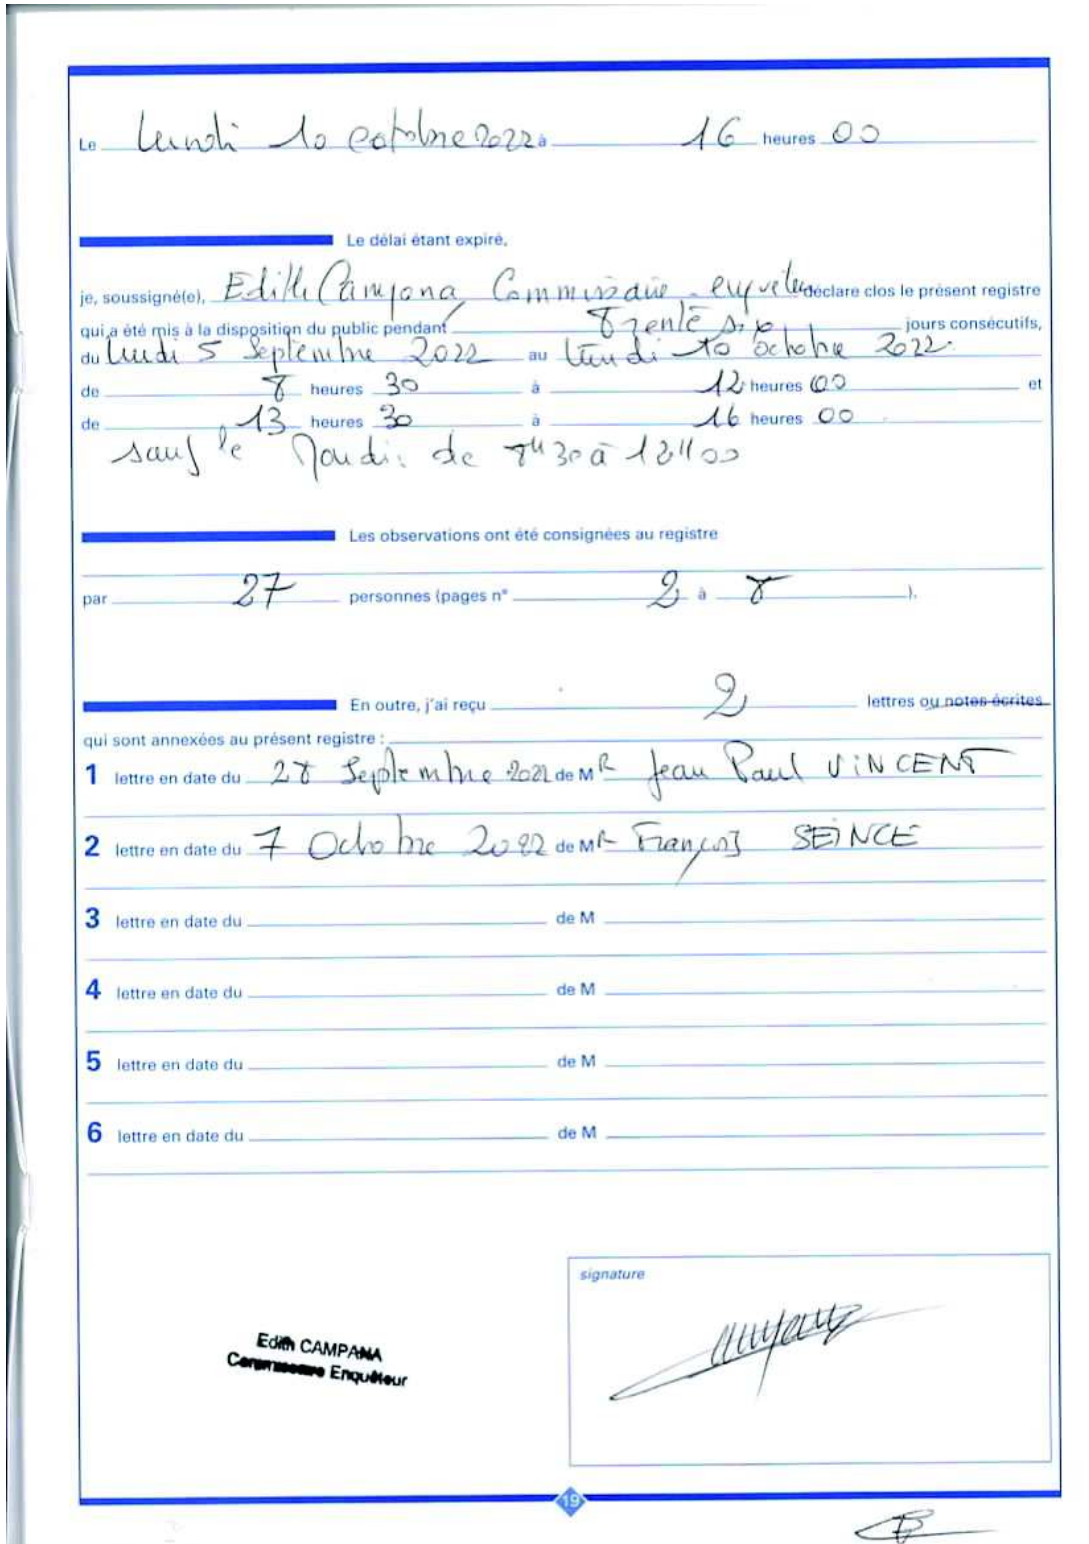 Le lundi 10 octobre 2022 à 16 heures 00
Le délai étant expiré,
je, soussigné(e), Edith Campana Commissaire enquêteur déclare clos le présent registre
qui a été mis à la disposition du public pendant Trente six jours consécutifs,
du lundi 5 Septembre 2022 au lundi 10 octobre 2022
de 8 heures 30 à 12 heures 00 et
de 13 heures 30 à 16 heures 00
sauf le de 8H30 à 12H00
Les observations ont été consignées au registre
par 27 personnes (pages n° 2 à 8 ).
En outre, j'ai reçu 2 lettres ou notes écrites
qui sont annexées au présent registre :
1 lettre en date du 28 Septembre 2022 de MR Jean Paul VINCENT
2 lettre en date du 7 Octobre 2022 de MR François SEINCE
3 lettre en date du de M
4 lettre en date du de M
5 lettre en date du de M
6 lettre en date du de M
signature
Edith CAMPANA
Commissaire Enquêteur
19